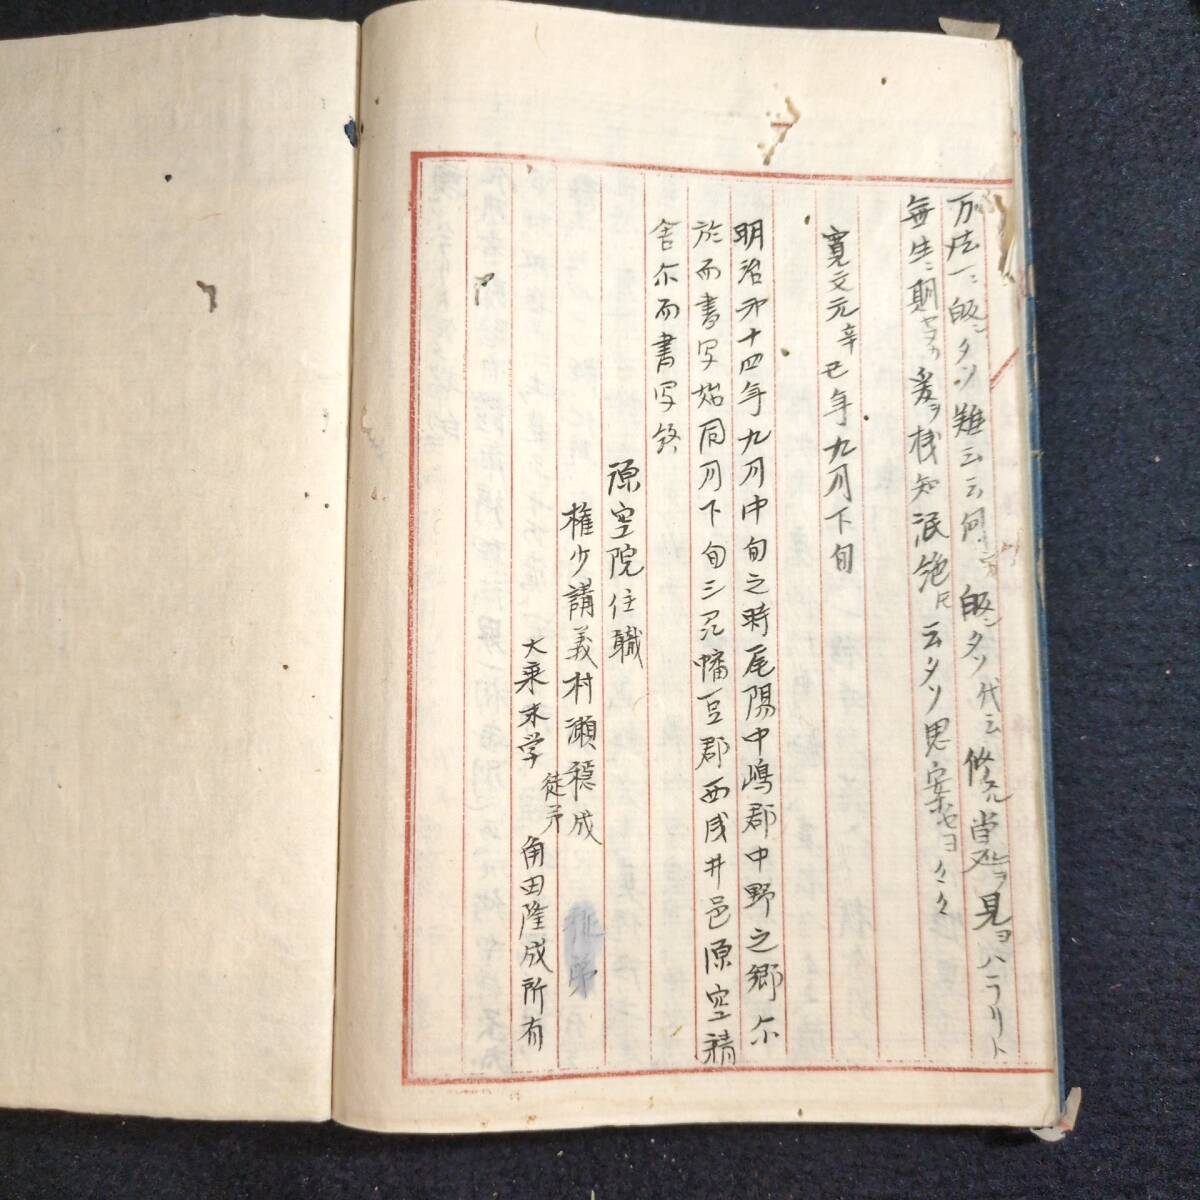 万法一ニ皈シタソ難云云何 皈シタソ代云修 見ヨハラリト
無生ニ期 爰ヲ 知泯絶 云タソ思案セヨ々々
寛文元辛巳年九月下旬
明治卅十四年九月中旬之時尾陽中嶋郡中野之郷尓
於而書写始同月下旬三河幡豆郡西浅井邑源空精
舎尓而書写終
源空院住職
権少講義村瀬穏成
徒弟
徒弟
大乗末学 角田隆成所有